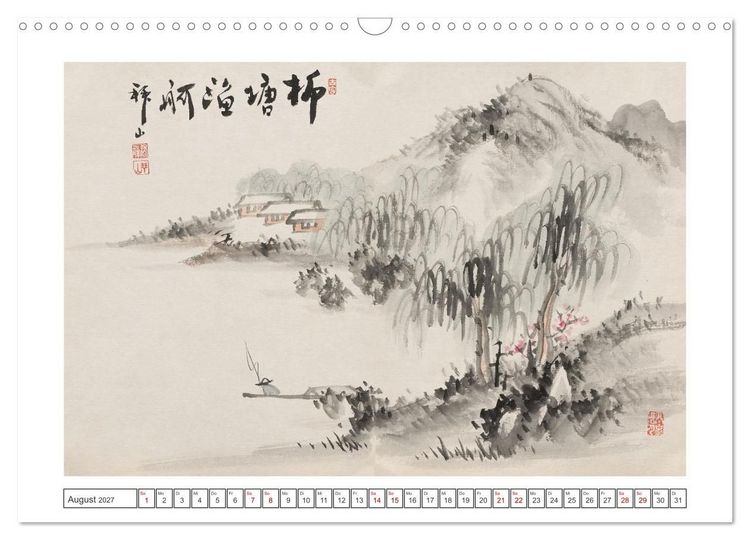 柳塘漁舸
山
August 2027
So 1 Mo 2 Di 3 Mi 4 Do 5 Fr 6 Sa 7 So 8 Mo 9 Di 10 Mi 11 Do 12 Fr 13 Sa 14 So 15 Mo 16 Di 17 Mi 18 Do 19 Fr 20 Sa 21 So 22 Mo 23 Di 24 Mi 25 Do 26 Fr 27 Sa 28 So 29 Mo 30 Di 31